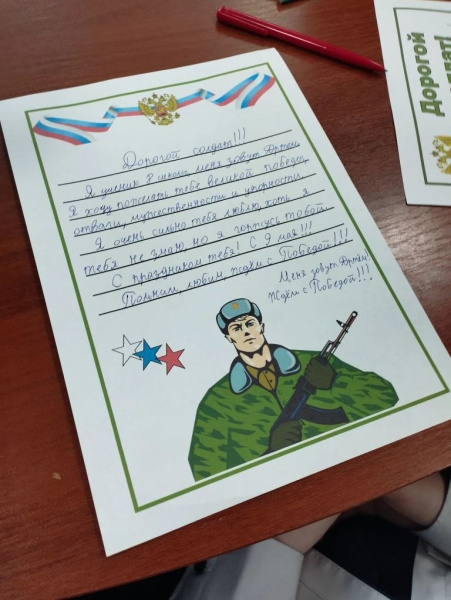 Дорогой солдат!!!
Я ученик 8 школы меня зовут Артём
Я хочу пожелать тебе великой победы,
отваги, мужественности и упорности.
Я очень сильно тебя люблю, хоть я
тебя не знаю, но я горжусь тобой.
С праздником тебя! С 9 мая!!!
Помним, любим ждём с Победой!!!
Меня зовут Артём!
Ждём с Победой!!!
Дорогой